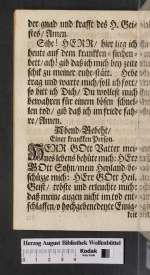 der gnad und krafft des H. Gei-
stes/ Amen.
Sihe! HERR/ hier lieg ich
heute auf dem krancken- siechen-
bett/ ach! gib daß ich mich bey zeite
schik zu meiner end-
trag und warte mich
so bitt ich Dich/ Du wollest mich
bewahren für einem bösen schnel-
len tod/ gib daß ich im friede fah-
re/ Amen.
Abend-Gebeht/
Einer krancken Person.
HERR GOtt Vatter mei-
nes lebens behüte mich: HErr
GOtt Sohn/ mein Heyland be-
schütze mich: HErr GOtt Heil.
Geist/ tröste und erleuchte mich:
daß meine augen nicht im tod ent-
schlaffen/ o hochgebenedeyte
keit
Herzog August Bibliothek Wolfenbüttel
Kodak